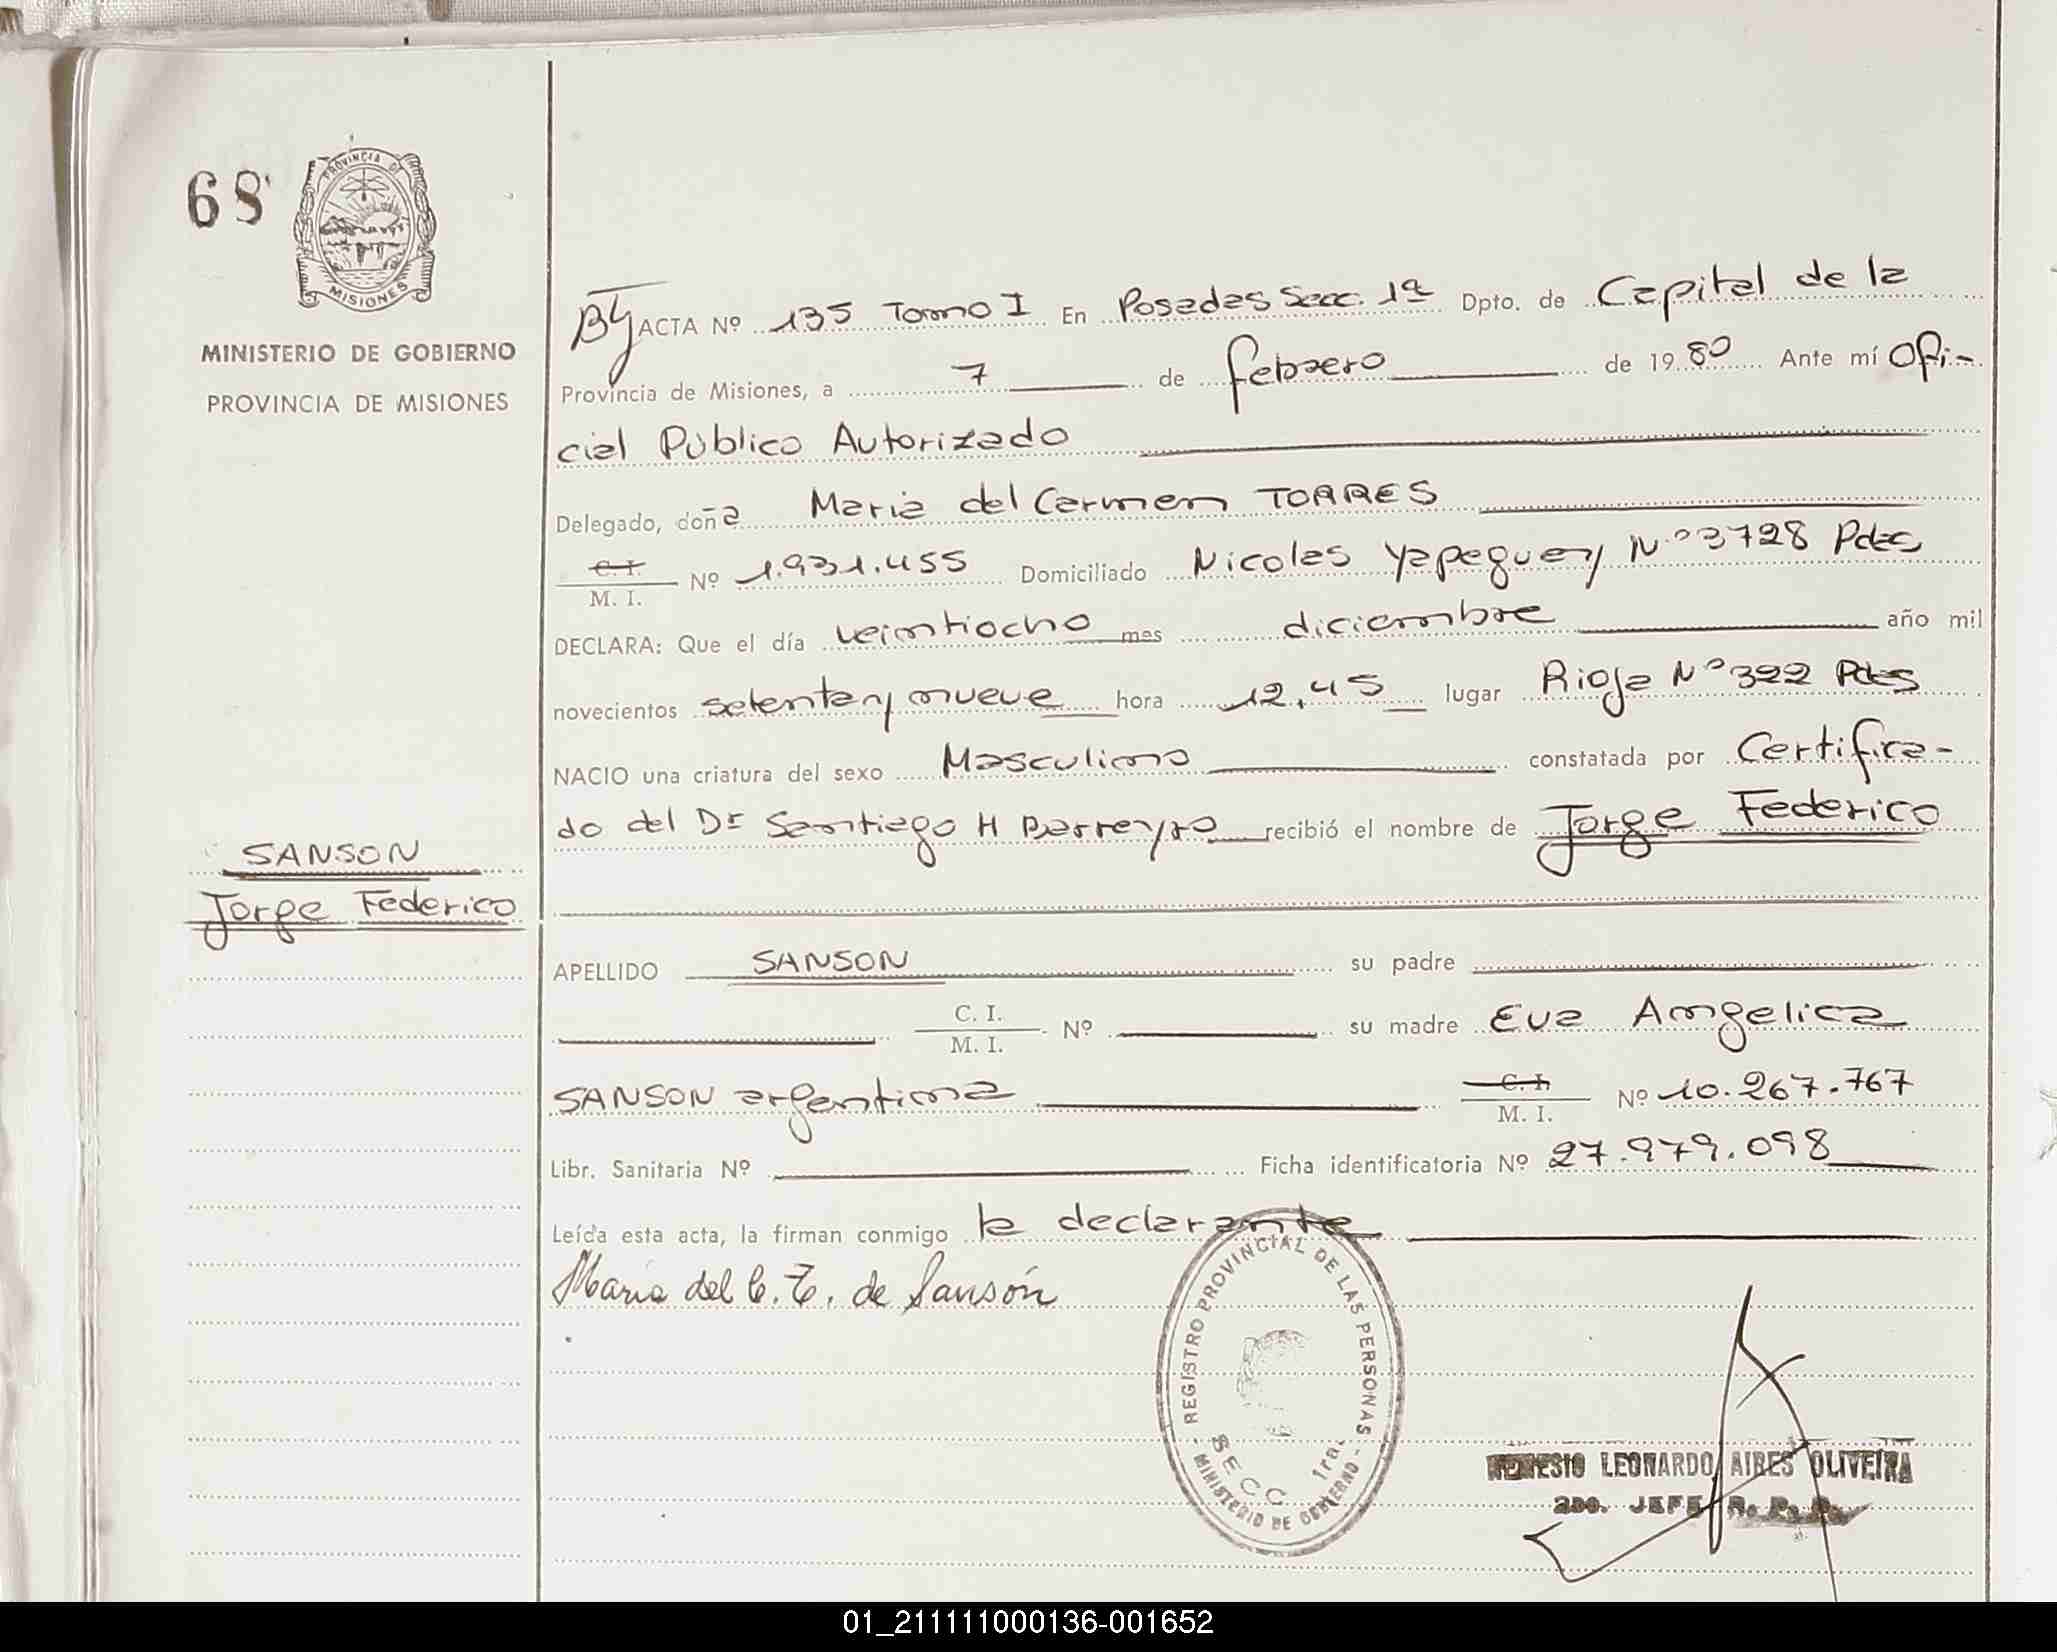 68
PROVINCIA DE
MISIONES
MINISTERIO DE GOBIERNO
PROVINCIA DE MISIONES
SANSON
Jorge Federico
ACTA Nº 135 Tomo I En Posadas Secc. 1ª Dpto. de Capital de la
Provincia de Misiones, a 7 de febrero de 1980 Ante mí Ofi-
cial Público Autorizado
Delegado, doña Maria del Carmen TORRES
C. I. / M. I. Nº 1.931.455 Domiciliado Nicolas Yapeguay Nº 3728 Pdas
DECLARA: Que el día veintiocho mes diciembre año mil
novecientos setenta y nueve hora 12,45 lugar Rioja Nº 322 Pdas
NACIO una criatura del sexo Masculino constatada por Certifica-
do del Dr Santiago H Barreyro recibió el nombre de Jorge Federico
APELLIDO SANSON su padre
C. I. / M. I. Nº su madre Eva Angelica
SANSON argentina C. I. / M. I. Nº 10.267.767
Libr. Sanitaria Nº Ficha identificatoria Nº 27.979.098
Leída esta acta, la firman conmigo la declarante
Maria del C. T. de Sansón
REGISTRO PROVINCIAL DE LAS PERSONAS
SECC 1ra.
- MINISTERIO DE GOBIERNO -
LEONARDO AIRES OLIVEIRA
2do. JEFE R. P. P.
01_211111000136-001652